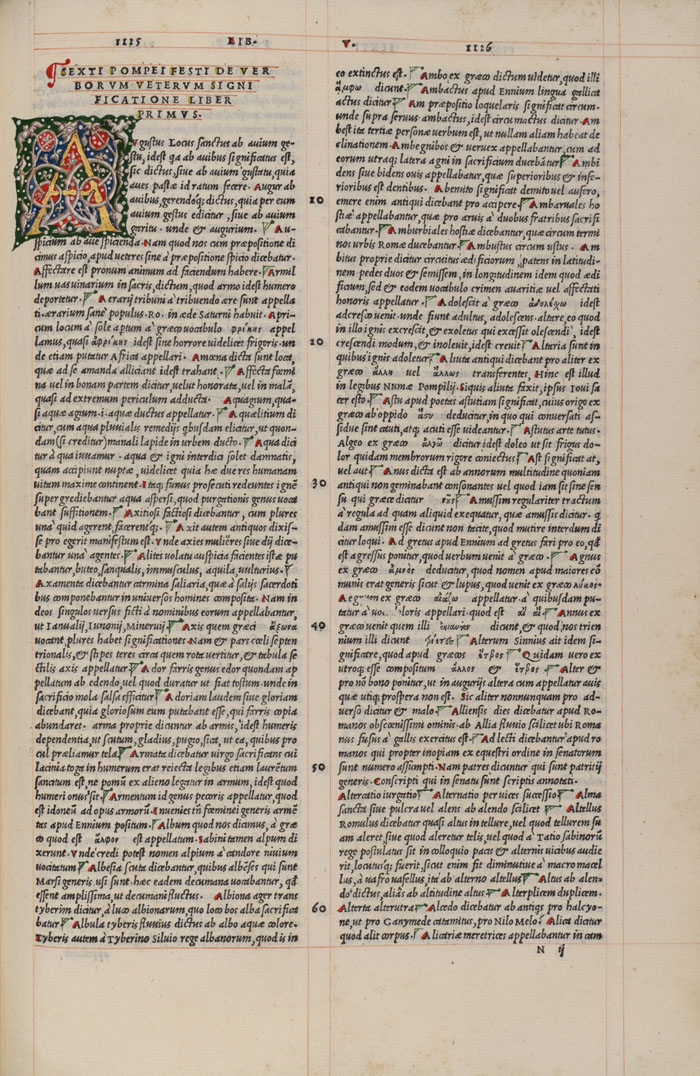 1125 LIB. V. 1126
SEXTI POMPEI FESTI DE VER
BORVM VETERVM SIGNI
FICATIONE LIBER
PRIMVS.
Augustus Locus sanctus ab auium ge-
stu, idest qa ab auibus significatus est,
sic dictus, siue ab auium gustatu, quia
aues pastæ id ratum fecere. Augur ab
auibus, gerendoq; dictus, quia per eum
auium gestus edicitur, siue ab auium
garitu. unde & augurium. Au-
spicium ab aue spicienda. Nam quod nos cum præpositione di
cimus aspicio, apud ueteres sine a præpositione spicio dicebatur.
Affectare est pronum animum ad faciendum habere. Armil
lum uas uinarium in sacris, dictum, quod armo idest humero
deportetur. Aerarij tribuni a tribuendo ære sunt appella
ti. ærarium sane populus. Ro. in æde Saturni habuit. Apri-
cum locum a sole aptum a græco uocabulo φρίκης appel
lamus, quasi ἀφρίκης idest sine horrore uidelicet frigoris. un
de etiam putatur Africa appellari. Amœna dicta sunt loca,
quæ ad se amanda alliciant idest trahant. Affecta fœmi
na uel in bonam partem dicitur, uelut honorata, uel in mala,
quasi ad extremum periculum adducta. Aquagium, qua-
si aquæ agium. i. aquæ ductus appellatur. A quælitium di
citur, cum aqua pluuialis remedijs qbusdam elicitur, ut quon-
dam (si creditur) manali lapide in urbem ducto. Aqua dici
tur à qua iuuamur. aqua & igni interdici solet damnatis,
quam accipiunt nuptæ, uidelicet quia hæ duæ res humanam
uitam maxime continent. Itaq; funus prosecuti redeuntes igne
supergrediebantur aqua aspersi, quod purgationis genus uocæ
bant suffitionem. Axitiosi factiosi dicebantur, cum plures
una quid agerent, facerentq;. Axit autem antiquos dixis-
se pro egerit manifestum est. Vnde axies mulieres siue dij dice-
bantur una agentes. Alites uolatu auspicia facientes istæ pu
tabantur, buteo, sanqualis, immusculus, aquila, uulturius.
Axamenta dicebantur carmina saliaria, quæ à salijs sacerdoti
bus componebantur in uniuersos homines composita. Nam in
deos singulos uersus ficti à nominibus eorum appellabantur,
ut Ianualij, Iunonij, Mineruij. Axis quem græci ἄξωνα
uocant, plures habet significationes. Nam & pars cœli septen
trionalis, & stipes teres circa quem rota uertitur, & tabula se
ctilis axis appellatur. Ador farris genus edor quondam ap
pellatum ab edendo, uel quod aduratur ut fiat tostum. unde in
sacrificio mola salsa efficitur. Adoriam laudem siue gloriam
dicebant, quia gloriosum eum putabant esse, qui farris copia
abundaret. arma proprie dicuntur ab armis, idest humeris
dependentia, ut scutum, gladius, pugio, sica, ut ea, quibus pro
cul præliamur tela. Armata dicebatur uirgo sacrificans cui
lacinia toga in humerum erat reiecta legibus etiam laurétum
sancitum est, ne pomum ex alieno legatur in armum, idest quod
humeri onus sit. Armentum id genus pecoris appellatur, quod
est idoneum ad opus armorum. Inuenies tñ fœminei generis armé
tas apud Ennium positum. Album quod nos dicimus, à græ
co quod est ἄλφον est appellatum. Sabini tamen alpum di
xerunt. Vnde credi potest nomen alpium à candore niuium
uocitatum. Albesia scuta dicebantur, quibus albéses qui sunt
Marsi generis usi sunt. hæc eadem decumana uocabantur, qd
essent amplissima, ut decumani fluctus. Albiona ager trans
tyberim dicitur, à luco albionarum, quo loco bos alba sacrificabatur
batur. Albula tyberis fluuius dictus ab albo aquæ colore.
Tyberis autem à Tyberino Siluio rege albanorum, quod is in
10
20
30
40
50
60
eo extinctus est. Ambo ex græco dictum uidetur, quod illi
ἄμφω dicunt. Ambactus apud Ennium lingua gallica
actus dicitur. Am præpositio loquelaris significat circum-
unde supra seruus ambactus, idest circumactus dicitur. Am
best ita tertiæ personæ uerbum est, ut nullam aliam habeat de
clinationem. Ambegnibos & ueruex appellabantur, cum ad
eorum utraq; latera agni in sacrificium ducebantur. Ambi
dens siue bidens ouis appellabatur, quæ superioribus & infe-
rioribus est dentibus. Abemito significat demito uel aufero,
emere enim antiqui dicebant pro accipere. Ambaruales ho
stiæ appellabantur, quæ pro aruis a duobus fratribus sacrifi
cabantur. Amburbiales hostiæ dicebantur, quæ circum termi
nos urbis Romæ ducebantur. Ambustus circum ustus. Am
bitus proprie dicitur circuitus ædificiorum patens in latitudi-
nem pedes duos & semissem, in longitudinem idem quod ædi
ficium, sed & eodem uocabulo crimen auaritiæ uel affectati
honoris appellatur. Adolescit a græco idest
adcresco uenit. unde fiunt adultus, adolescens. altere, eo quod
in illo ignis excrescit, & exoletus qui excessit olescendi, idest
crescendi modum, & inoleuit, idest creuit. Altaria sunt in
quibus ignis adoletur. Aliuta antiqui dicebant pro aliter ex
græco uel transferentes. Hinc est illud
in legibus Numæ Pompilij. Siquis aliuta faxit, ipsus Ioui sa
cer esto. Astu apud poetas astutiam significat, cuius origo ex
græco ab oppido ἄστυ deducitur, in quo qui conuersati as-
sidue sint cauti, atq; acuti esse uideantur. Astutus arte tutus.
Algeo ex græco ἀλγῶ dicitur idest doleo ut sit frigus do-
lor quidam membrorum rigore coniectus. Ast significat at,
uel aut. Anus dicta est ab annorum multitudine quoniam
antiqui non geminabant consonantes uel quod iam sit sine sen
su qui græce dicitur νοῦς. Amussim regulariter tractum
a regula ad quam aliquid exequatur, quæ amussis dicitur. q
dam amussim esse dicunt non tacite, quod mutire interdum di
citur loqui. Ad gretus apud Ennium ad gretus fari pro eo, qd
est agressus ponitur, quod uerbum uenit a græco. Agnus
ex græco ἀμνὸς deducitur, quod nomen apud maiores cō
munis erat generis sicut & lupus, quod uenit ex græco λύκος.
ex græco appellatur a quibusdam pu-
tatur a loris appellari. quod est Annus ex
græco uenit quem illi dicunt, & quod nos trien
nium illi dicunt Alterum Sinnius ait idem si-
gnificare, quod apud græcos ἕτερος. Quidam uero ex
utroq; esse compositum ἄλλος & ἕτερος. Alter &
pro nō bono ponitur, ut in augurijs altera cum appellatur auis
quæ utiq; prospera non est. Sic aliter nonnunquam pro ad-
uerso dicitur & malo. Alliensis dies dicebatur apud Ro-
manos obscœnissimi ominis. ab Allia fluuio scilicet ubi Roma
nus fusus a gallis exercitus est. Adlecti dicebantur apud ro
manos qui propter inopiam ex equestri ordine in senatorum
sunt numero assumpti. Nam patres dicuntur qui sunt patritij
generis. Conscripti qui in senatu sunt scriptis annotati.
Altercatio iurgatio. Alternatio per uices successio. Alma
sancta siue pulcra uel alens ab alendo scilicet. Altellus
Romulus dicebatur quasi altus in tellure, uel quod tellurem su
am aleret siue quod aleretur telis, uel quod a Tatio sabinorū
rege postulatus sit in colloquio pacis & alternis uicibus audie
rit, locutusq; fuerit, sicut enim fit diminutiue a macro macel
lus, à nafro uafellus, ita ab alterno altellus. Altus ab alen-
do dictus, alias ab altitudine altus. Alterplicem duplicem.
Alterta alterutra. Alcedo dicebatur ab antiqs pro halcyo-
ne, ut pro Ganymede catamitus, pro Nilo Melo. Alica dicitur
quod alit corpus. Alicariæ meretrices appellabantur in cam
N ij